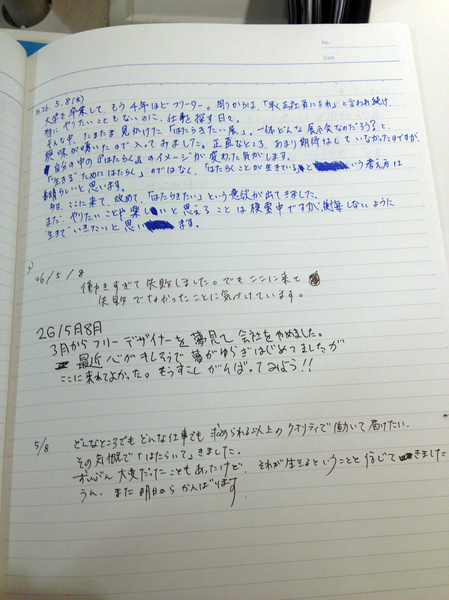 No.
Date
H.26. 5. 8(木)
大学を卒業して、もう4年ほどフリーター。周りからは、「早く正社員になれ」と言われ続け、
特に、やりたいこともないのに、仕事を探す日々。
そんな中、たまたま見かけた「はたらきたい展」。一体どんな展示会なのだろう?と
興味が湧いたので入ってみました。正直なところ、あまり期待はしていなかったのですが、
自分の中の『はたらく』のイメージが変わった気がします。
"生きる"ために『はたらく』のではなく、「はたらくことが生きている」という考え方は
素晴らしいと思います。
今日、ここに来て、改めて、「はたらきたい」という意欲が出てきました。
まだ、やりたいことや楽しいと思えることは模索中ですが、後悔しないように
"生きて"いきたいと思います。
06/5/8
働きすぎて失敗しました。でもここに来て
失敗でなかったことに気付けています。
26/5月8日
3月からフリーデザイナーを夢見て会社をやめました。
最近心がおれそうで夢がゆらぎはじめてましたが
ここに来れてよかった。もうすこしがんばってみよう!!
5/8
どんなところでもどんな仕事でも求められる以上のクオリティで働いて届けたい。
その気概で「はたらいて」きました。
ずいぶん大変だったこともあったけど、それが生きるということと信じてきました
うん、また明日からがんばります